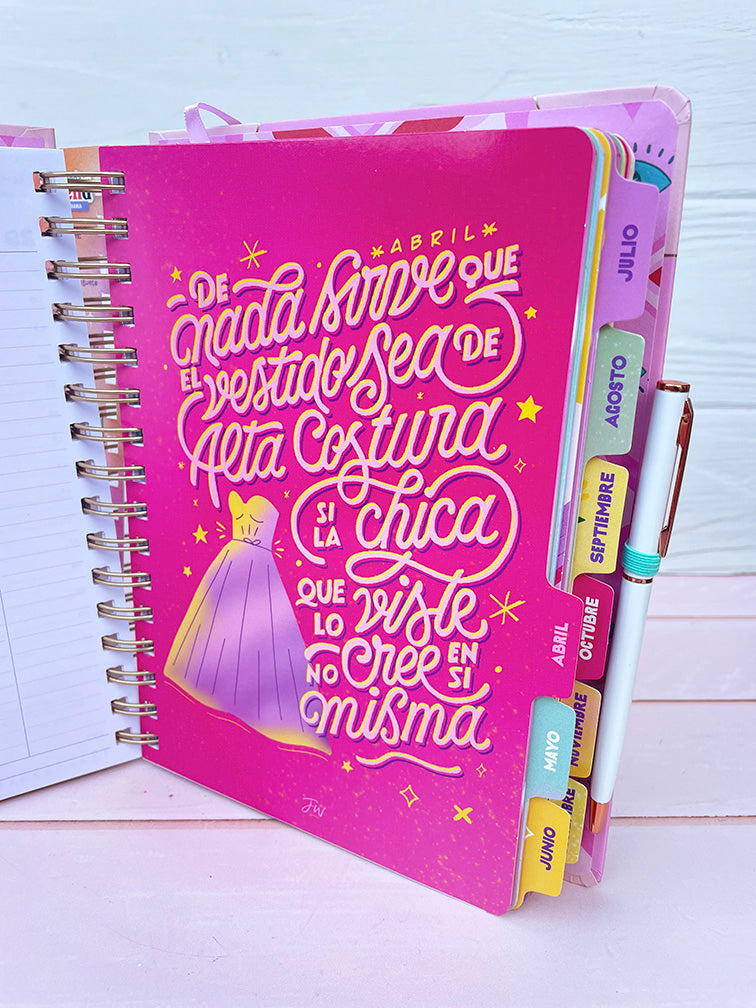 *ABRIL*
DE nada sirve QUE
EL vestido sea DE
Alta Costura
SI LA chica
QUE LO viste
NO cree EN SI
misma
JW
JULIO
AGOSTO
SEPTIEMBRE
OCTUBRE
NOVIEMBRE
BRE
ABRIL
MAYO
JUNIO